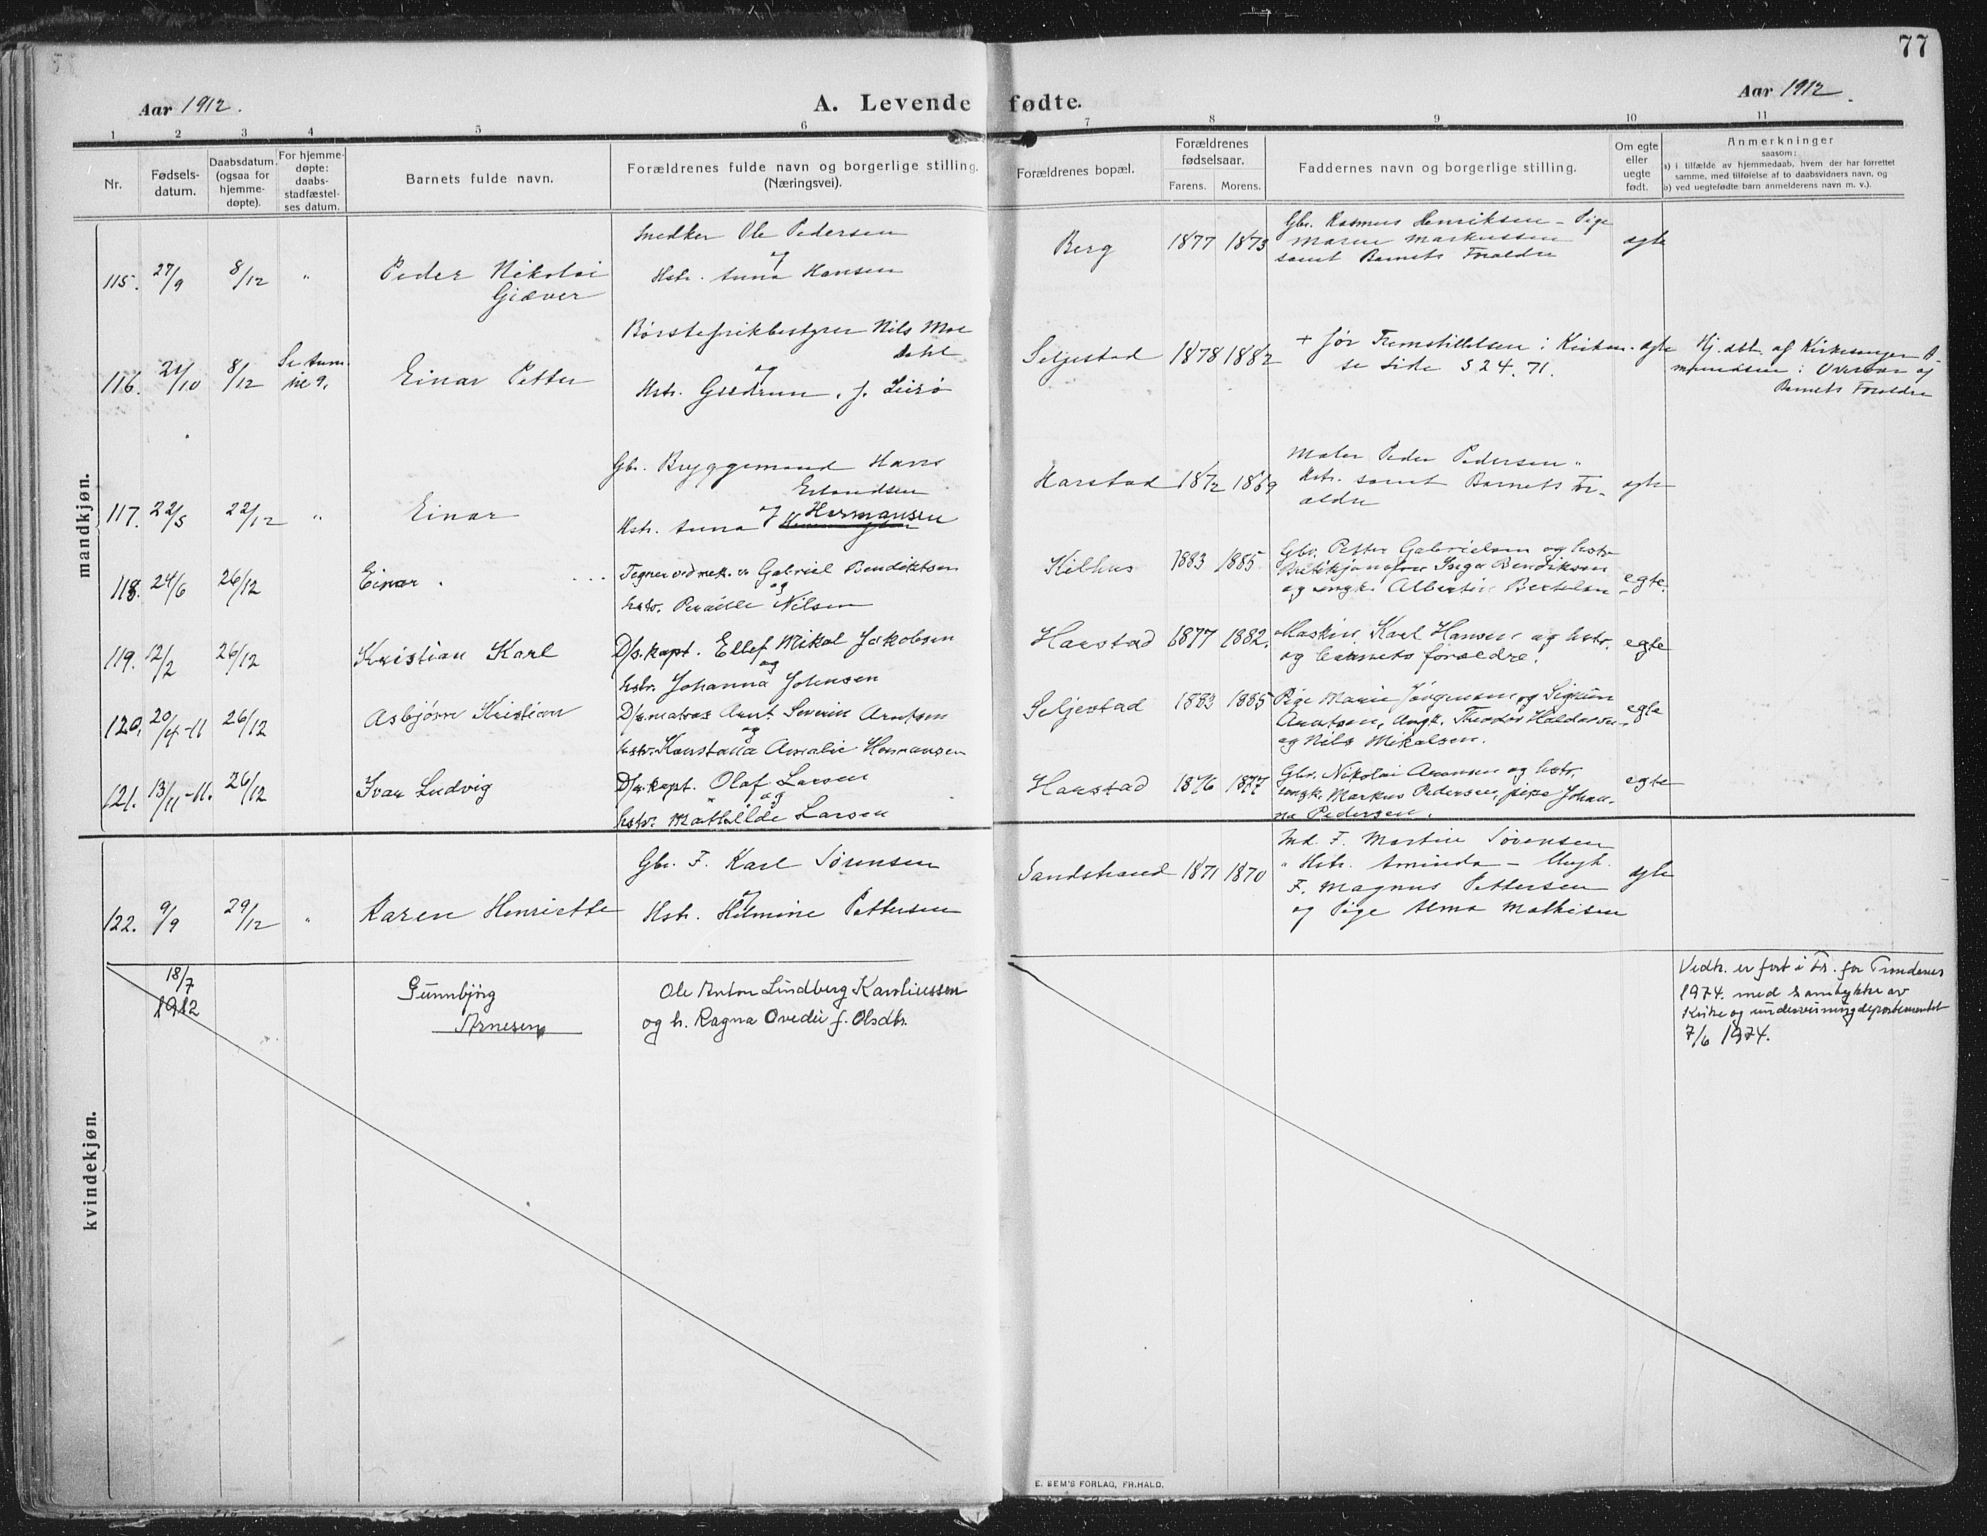 77
Aar 1912.
A. Levende fødte.
Aar 1912.
1 2 3 4 5 6 7 8 9 10 11
Nr.
Fødsels-
datum.
Daabsdatum.
(ogsaa for
hjemme-
døpte).
For hjemme-
døpte:
daabs-
stadfæstel-
ses datum.
Barnets fulde navn.
Forældrenes fulde navn og borgerlige stilling.
(Næringsvei).
Forældrenes bopæl.
Forældrenes
fødselsaar.
Farens. Morens.
Faddernes navn og borgerlige stilling.
Om egte
eller
uegte
født.
Anmerkninger
saasom:
a) i tilfælde av hjemmedaab, hvem der har forrettet
samme, med tilføielse af to daabsvidners navn, og
b) ved uegtefødte barn anmelderens navn m. v.).
mandkjøn.
115. 27/9 8/12 "
Peder Nikolai
Giæver
Snedker Ole Pedersen
og
Hstr. Anna Hansen
Berg 1877 1873
Gbr. Rasmus Henriksen - Pige
Maren Markussen
samt Barnets Foraldre
egte
116. 21/10 8/12
Se Anm.
Einar Petter
Børstefrikbestyrer Nils Moe
Dahl
og
Hstr. Gudrun, f. Leirø
Seljestad 1878 1882
+ før Fremstillelsen i Kirken.
se Side 524. 71.
egte
Hj. dbt. af Kirkesanger
i Overvær af
Barnets Foraldre
117. 22/5 22/12 "
Einar
Gbr. Bryggemand Hans
Erlandsen
og
Hstr. Anna Hermansen
Harstad 1872 1869
Maler Peder Pedersen
Hstr. samt Barnets For-
ældre
egte
118. 24/6 26/12
Einar.
Tegner ved mek. v. Gabriel Bendiktsen
og
hstr. Pernille Nilsen
Kilhus 1883 1885
Gbr. Petter Gabrielsen og hstr.
Butikjomfru Inga Bendiksen
og ungk. Albertin Bertelsen
egte.
119. 12/2 26/12
Kristian Karl
D/s.kapt. Ellef Mikal Jakobsen
og
hstr. Johanna Johensen
Harstad 1877 1882.
Maskin. Karl Hansen og hstr.
og barnets forældre.
egte
120. 20/4-11 26/12
Asbjørn Kristian
D/s.matros Arnt Severin Arntsen
og
hstr. Konstansa Amalie Hermansen
Seljestad 1883 1885
Pige Marie Jørgensen og Sigrun
Arntsen, ungk. Theodor Haldorsen
og Nils Mikalsen.
egte
121. 13/11-11. 26/12
Ivar Ludvig
D/s.kapt. Olaf Larsen
og
hstr. Mathilde Larsen
Harstad 1876 1877
Gbr. Nikolai Aronsen og hstr.
ungk. Markus Pedersen, pike Johan-
na Pedersen.
egte
122. 9/9 29/12 "
Karen Henriette
Gbr. F. Karl Sørensen
og
Hstr. Hilmine Pettersen
Sandstrand 1871 1870
Md. F. Martin Sørensen
" Hstr. Aminda - Ungk.
F. Magnus Pettersen
og Pige Alma Mathisen
egte
kvindekjøn.
18/7
1912
Gunnbjörg
Arnesen
Ole Anton Lindberg Karoliussen
og h. Ragna Ovedie f. Olsdtr.
Vedk. er ført i Fr. for Trondenes
1974 med samtykke av
Kirke og undervisningsdepartementet
7/6 1974.
E. SEM'S FORLAG, FR.HALD.